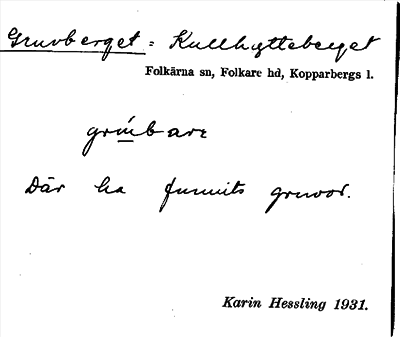 Gruvberget = Kullhytteberget
Folkärna sn, Folkare hd, Kopparbergs l.
Där ha funnits gruvor.
Karin Hessling 1931.